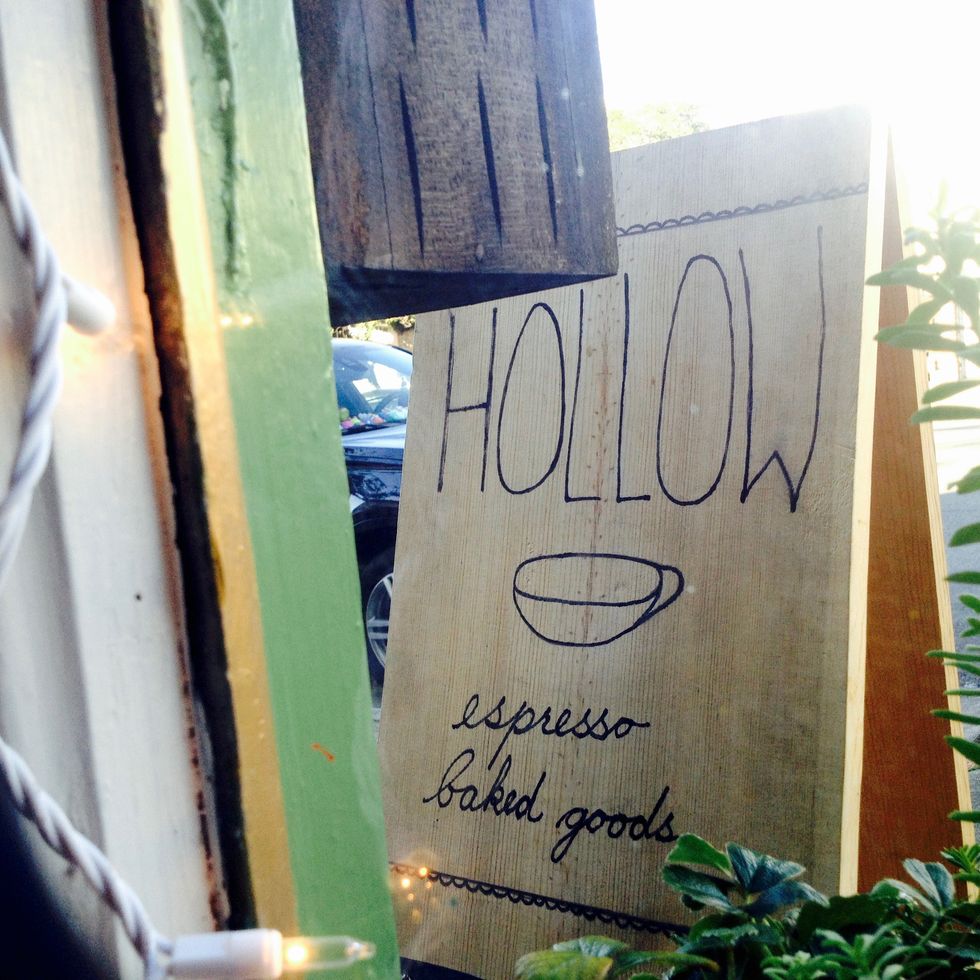 HOLLOW
espresso
baked goods